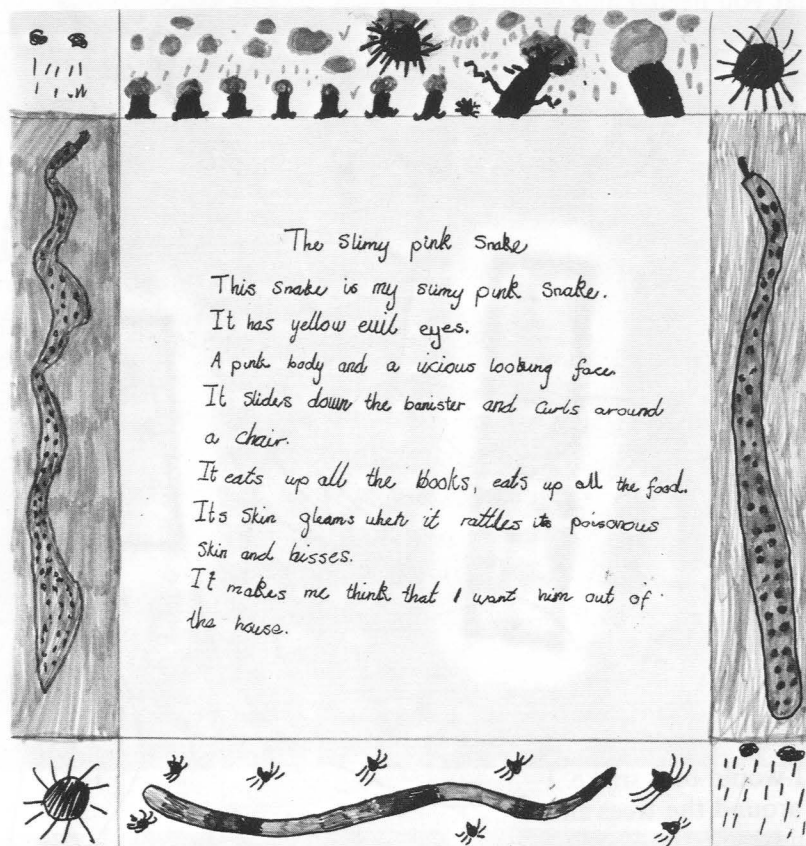 The slimy pink snake
This snake is my slimy pink snake.
It has yellow evil eyes.
A pink body and a vicious looking face.
It slides down the banister and curls around
a chair.
It eats up all the books, eats up all the food.
Its skin gleams when it rattles its poisonous
skin and hisses.
It makes me think that I want him out of
the house.